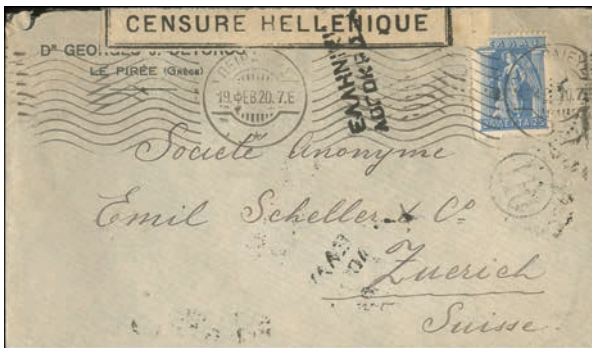 CENSURE HELLENIQUE
Dr GEORGES J.
LE PIRÉE (GRÈCE)
19.ΦΕΒ.20. 7.Ε
ΕΛΛΗΝΙΚΗ
ΛΟΓΟΚΡΙΣΙΑ
ΛΕΠΤΑ 25
Societé Anonyme
Emil Scheller & Co
Zuerich
Suisse.